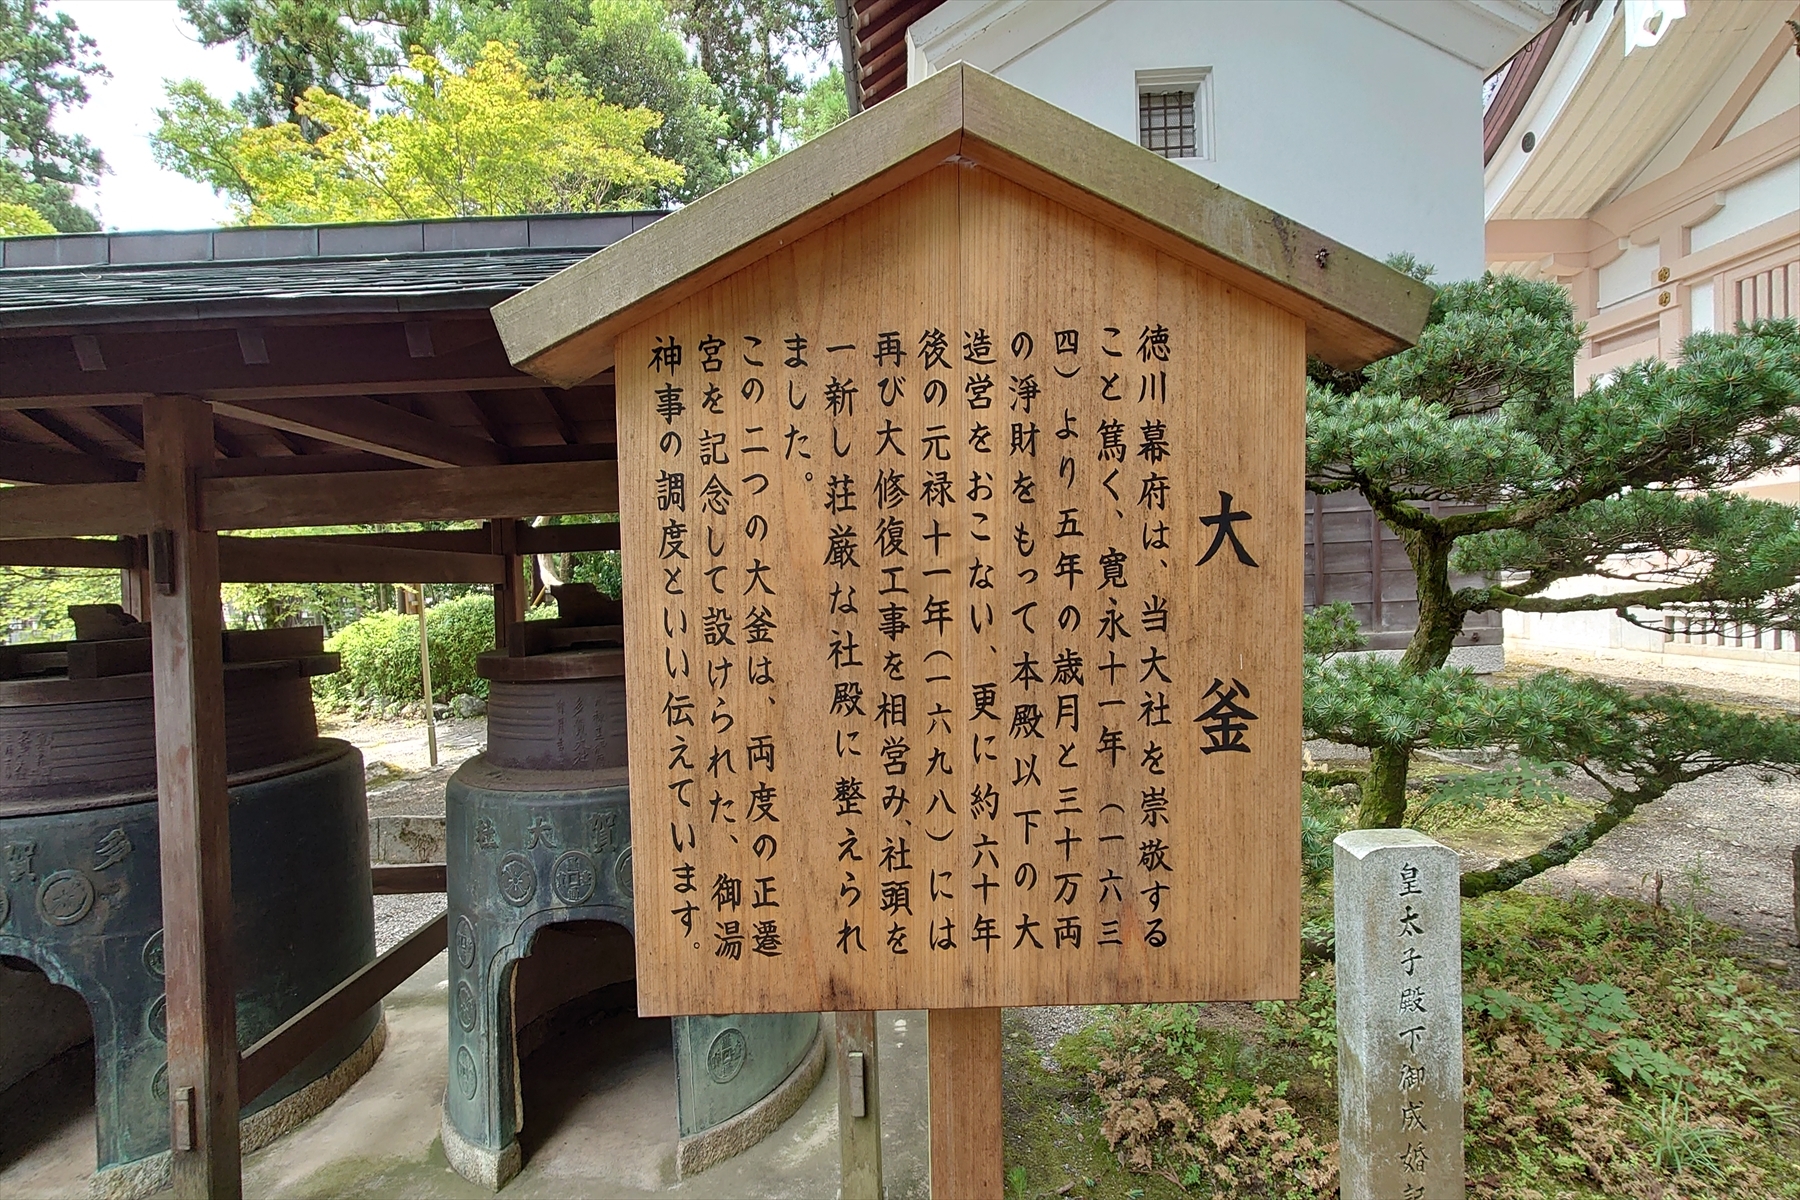 大釜
徳川幕府は、当大社を崇敬する
こと篤く、寛永十一年（一六三
四）より五年の歳月と三十万両
の淨財をもって本殿以下の大
造営をおこない、更に約六十年
後の元禄十一年（一六九八）には
再び大修復工事を相営み、社頭を
一新し荘厳な社殿に整えられ
ました。
この二つの大釜は、両度の正遷
宮を記念して設けられた、御湯
神事の調度といい伝えています。
皇太子殿下御成婚記
賀大社
多賀